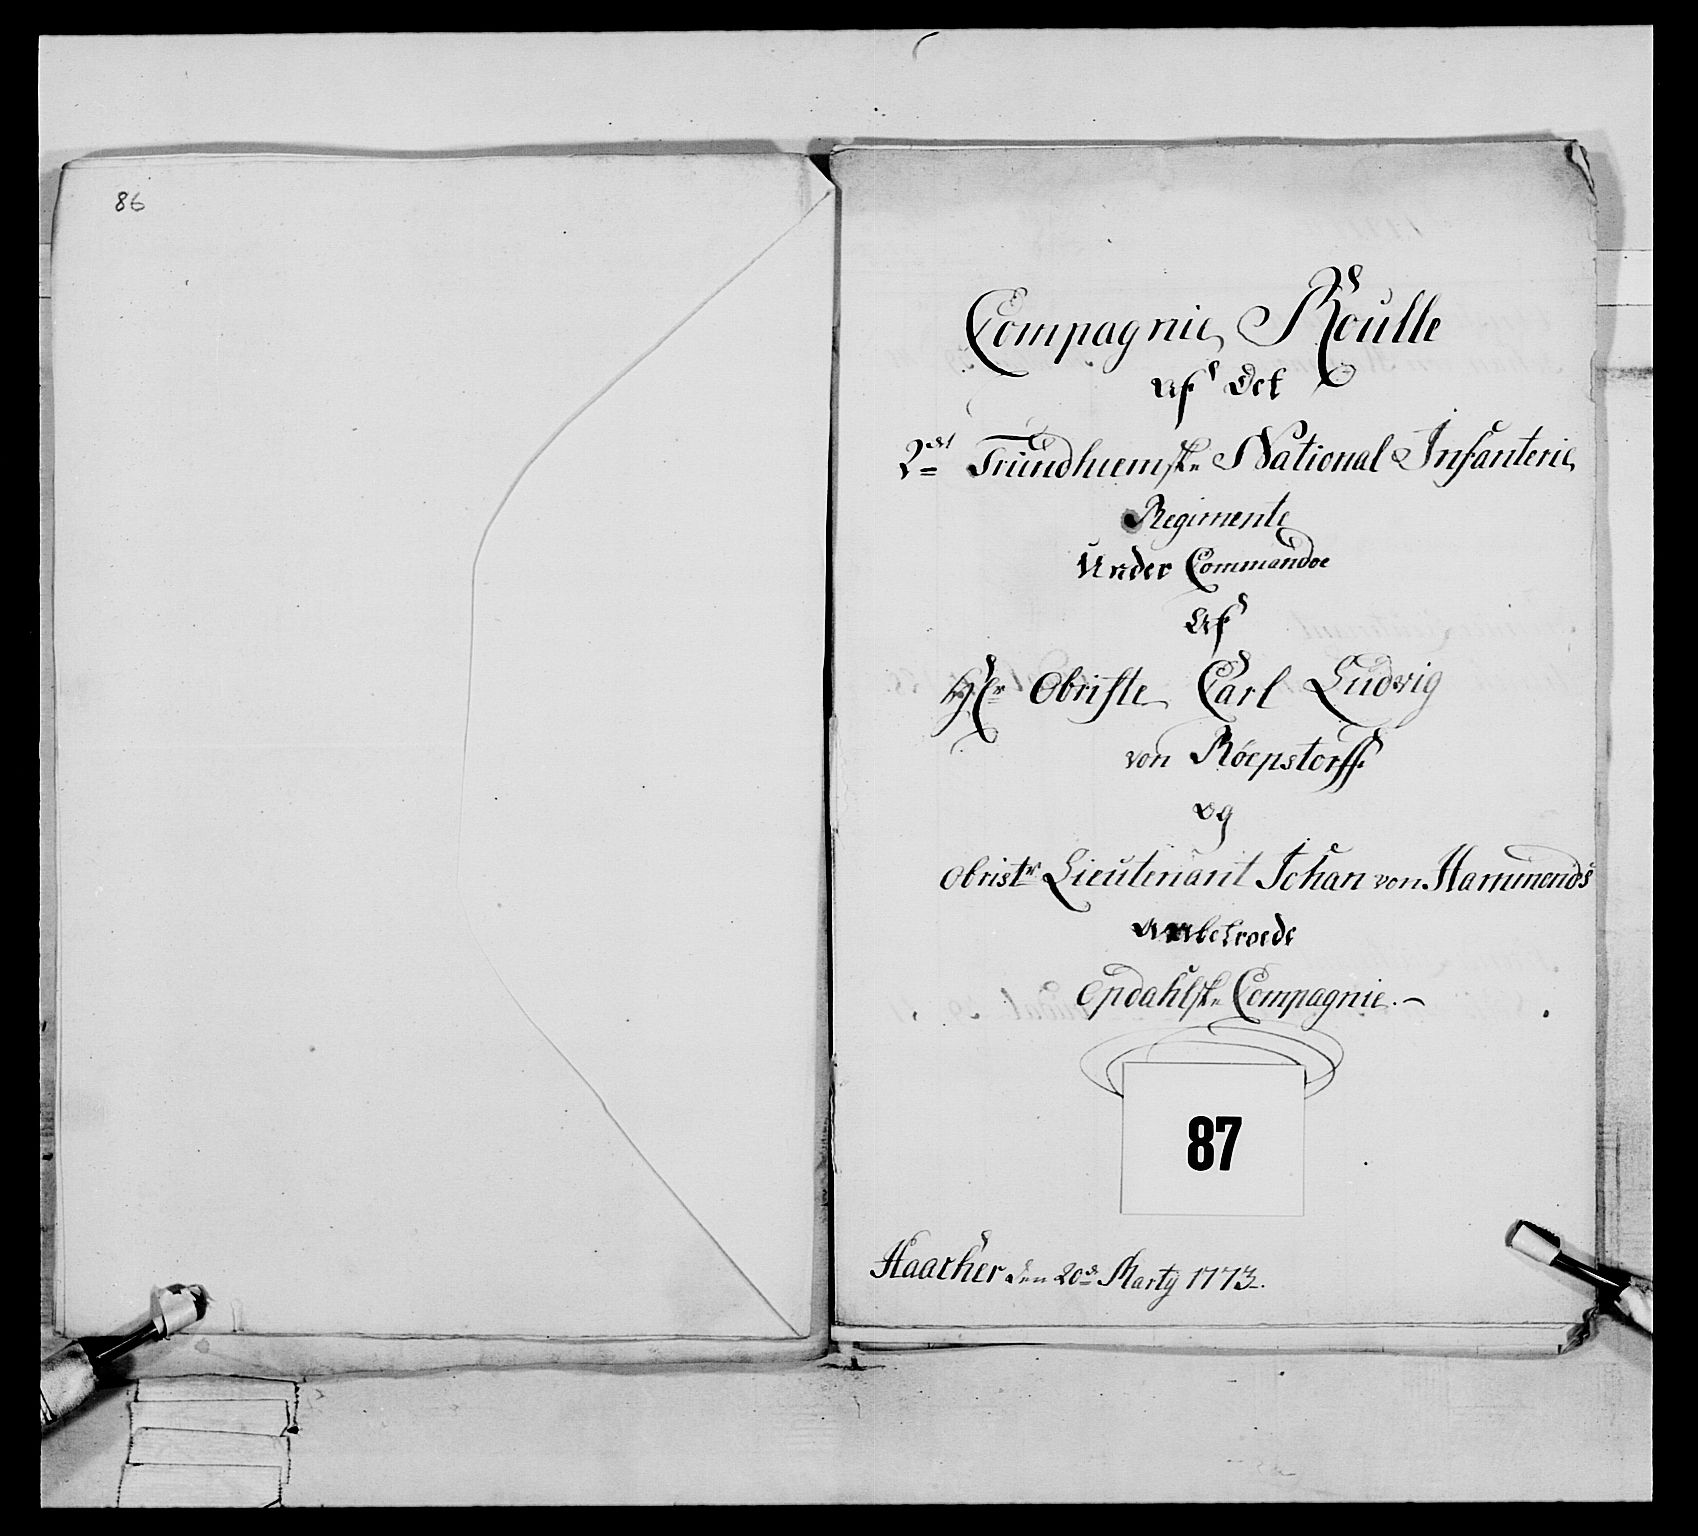 86
Compagnie Roulle
af Det
2det Trundhiemske National Infanterie
Regimente
Under Commandoe
Af
Hr Obriste Carl Ludvig
von Röepstorff
og
Obristr Lieutenant Johan von Hammonds
Anbetroede
Opdahlske Compagnie.
87
Haacker den 20de Marty 1773.